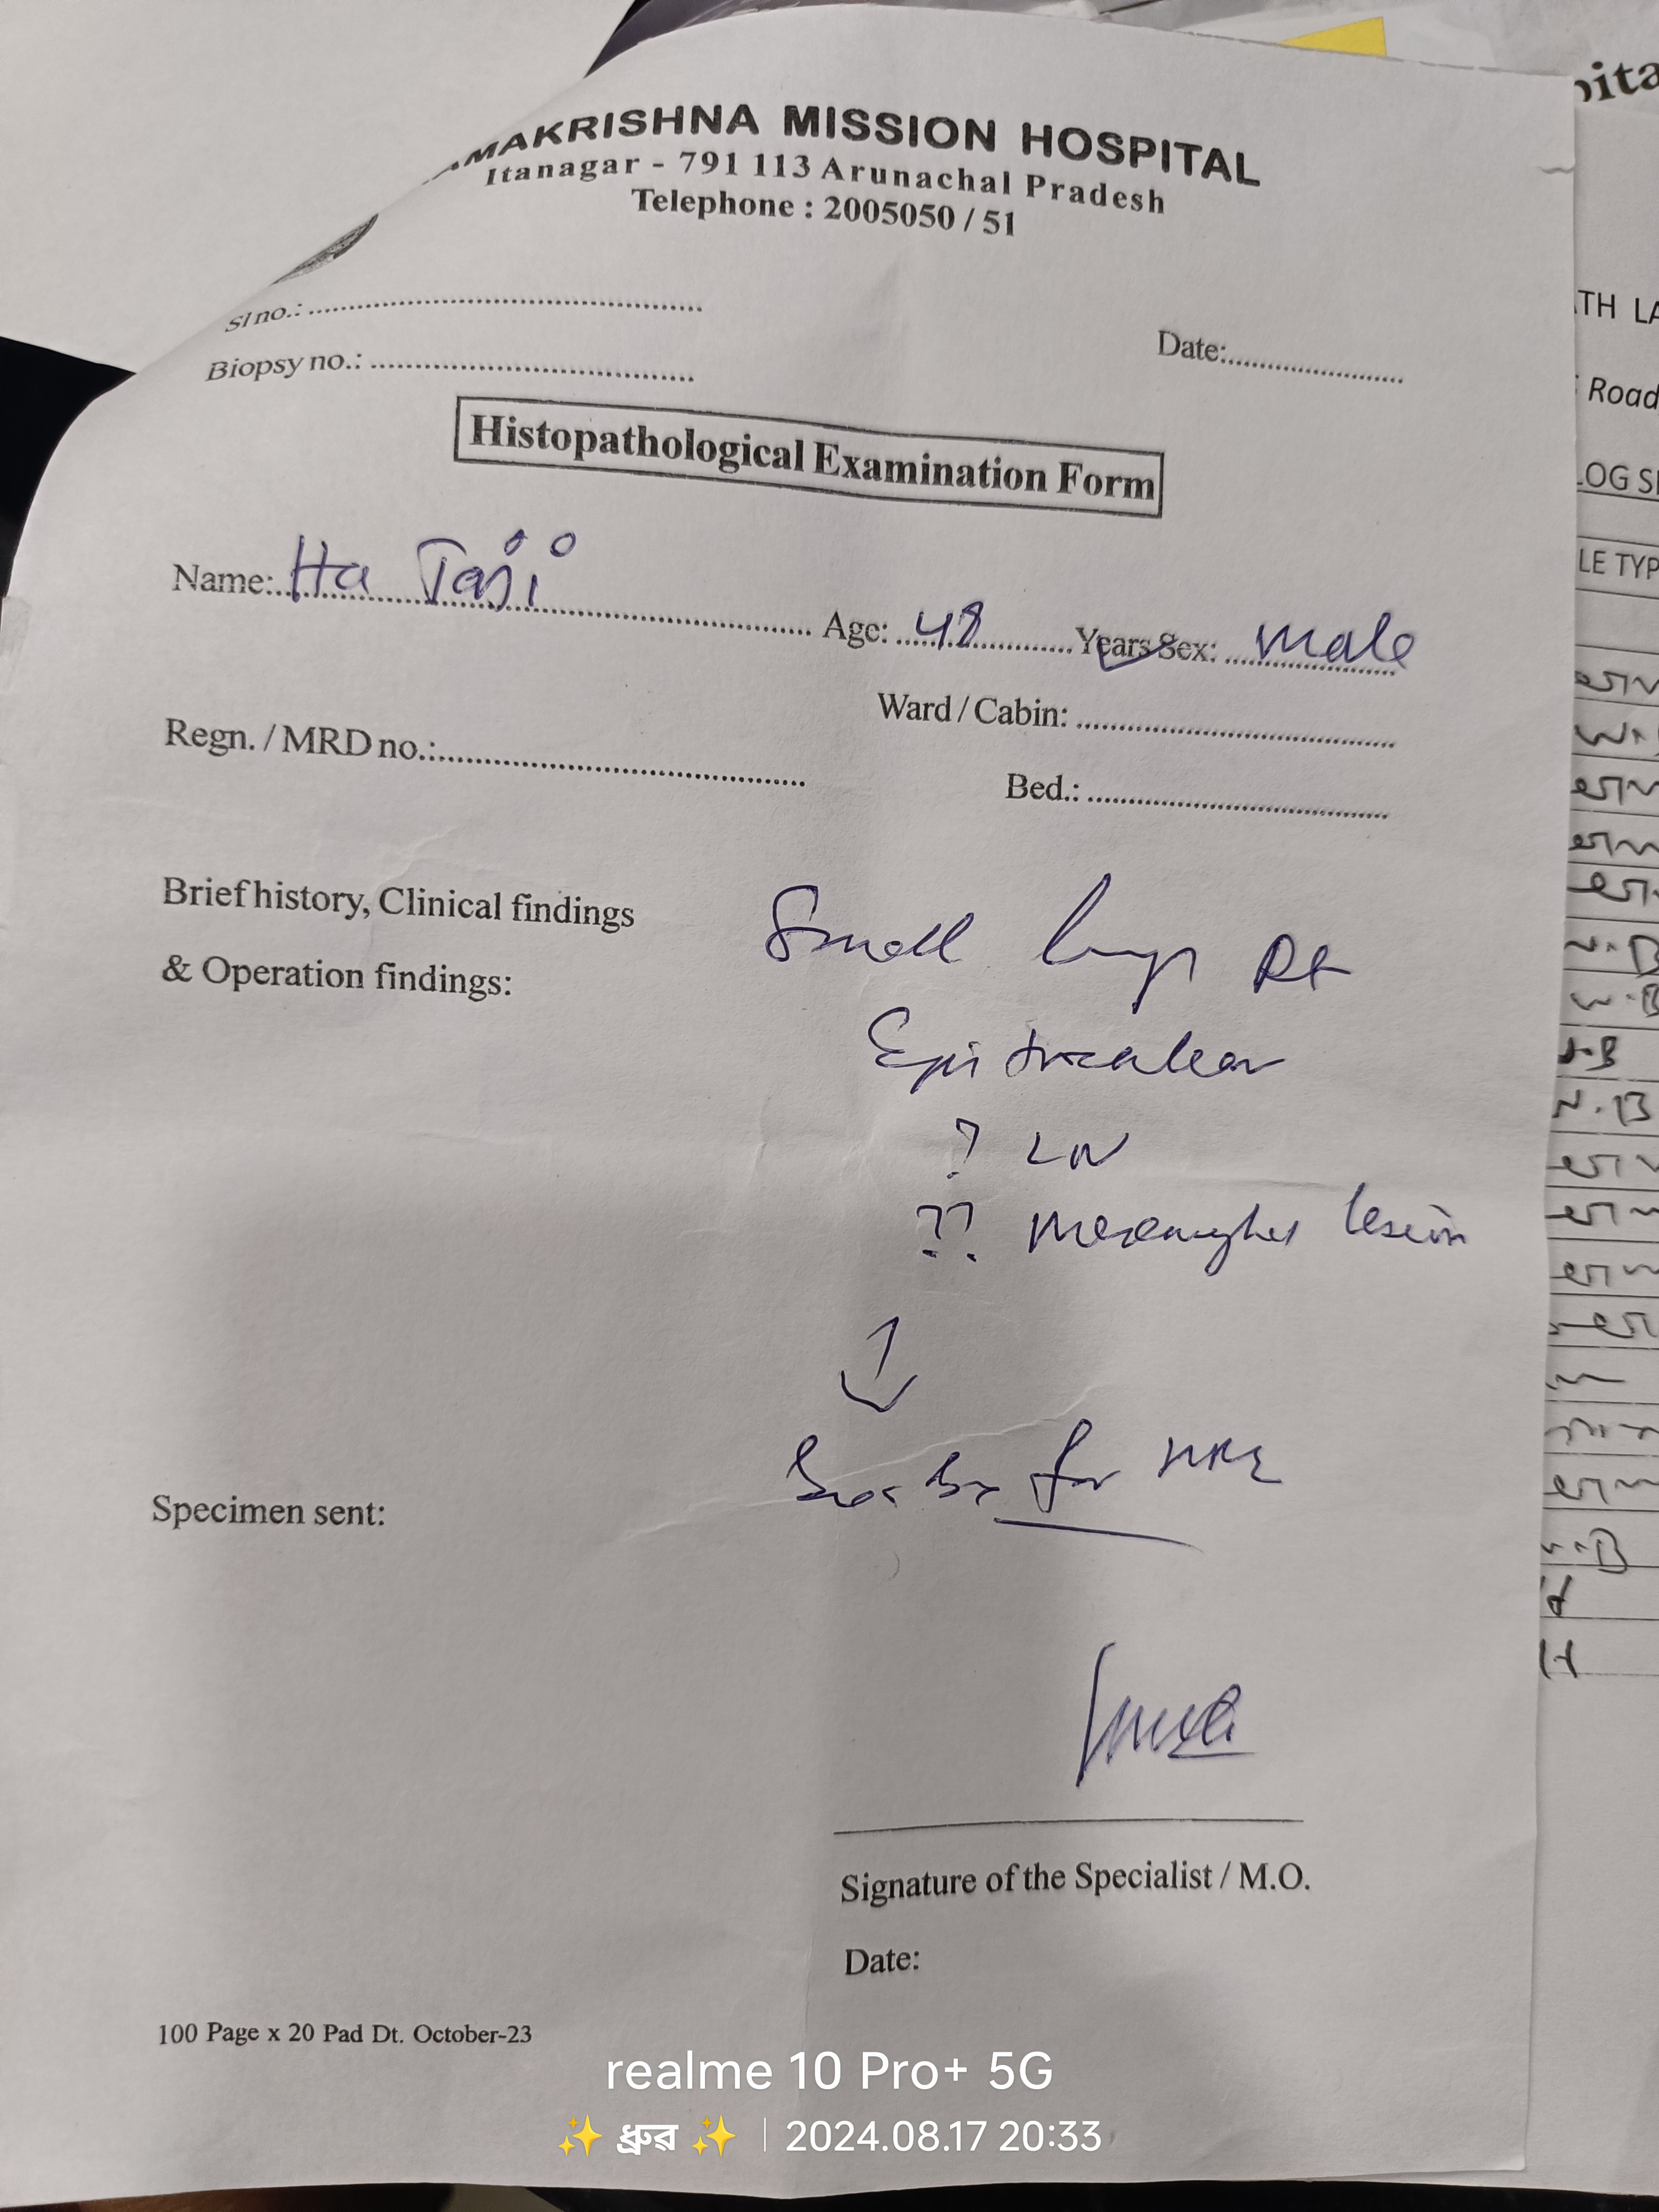 MAKRISHNA MISSION HOSPITAL
Itanagar - 791 113 Arunachal Pradesh
Telephone : 2005050 / 51
Sl no.:
Biopsy no.:
Date:
Histopathological Examination Form
Name: Ha Taji
Age: 48 Years Sex: Male
Ward / Cabin:
Regn. / MRD no.:
Bed.:
Brief history, Clinical findings
& Operation findings:
Small lump Rt
Epitrochlear
? LN
?? lesion
for HPE
Specimen sent:
Signature of the Specialist / M.O.
Date:
100 Page x 20 Pad Dt. October-23
pita
TH LA
Road
LOG S
LE TYP
realme 10 Pro+ 5G
✨ ধ্রুৱ ✨ | 2024.08.17 20:33